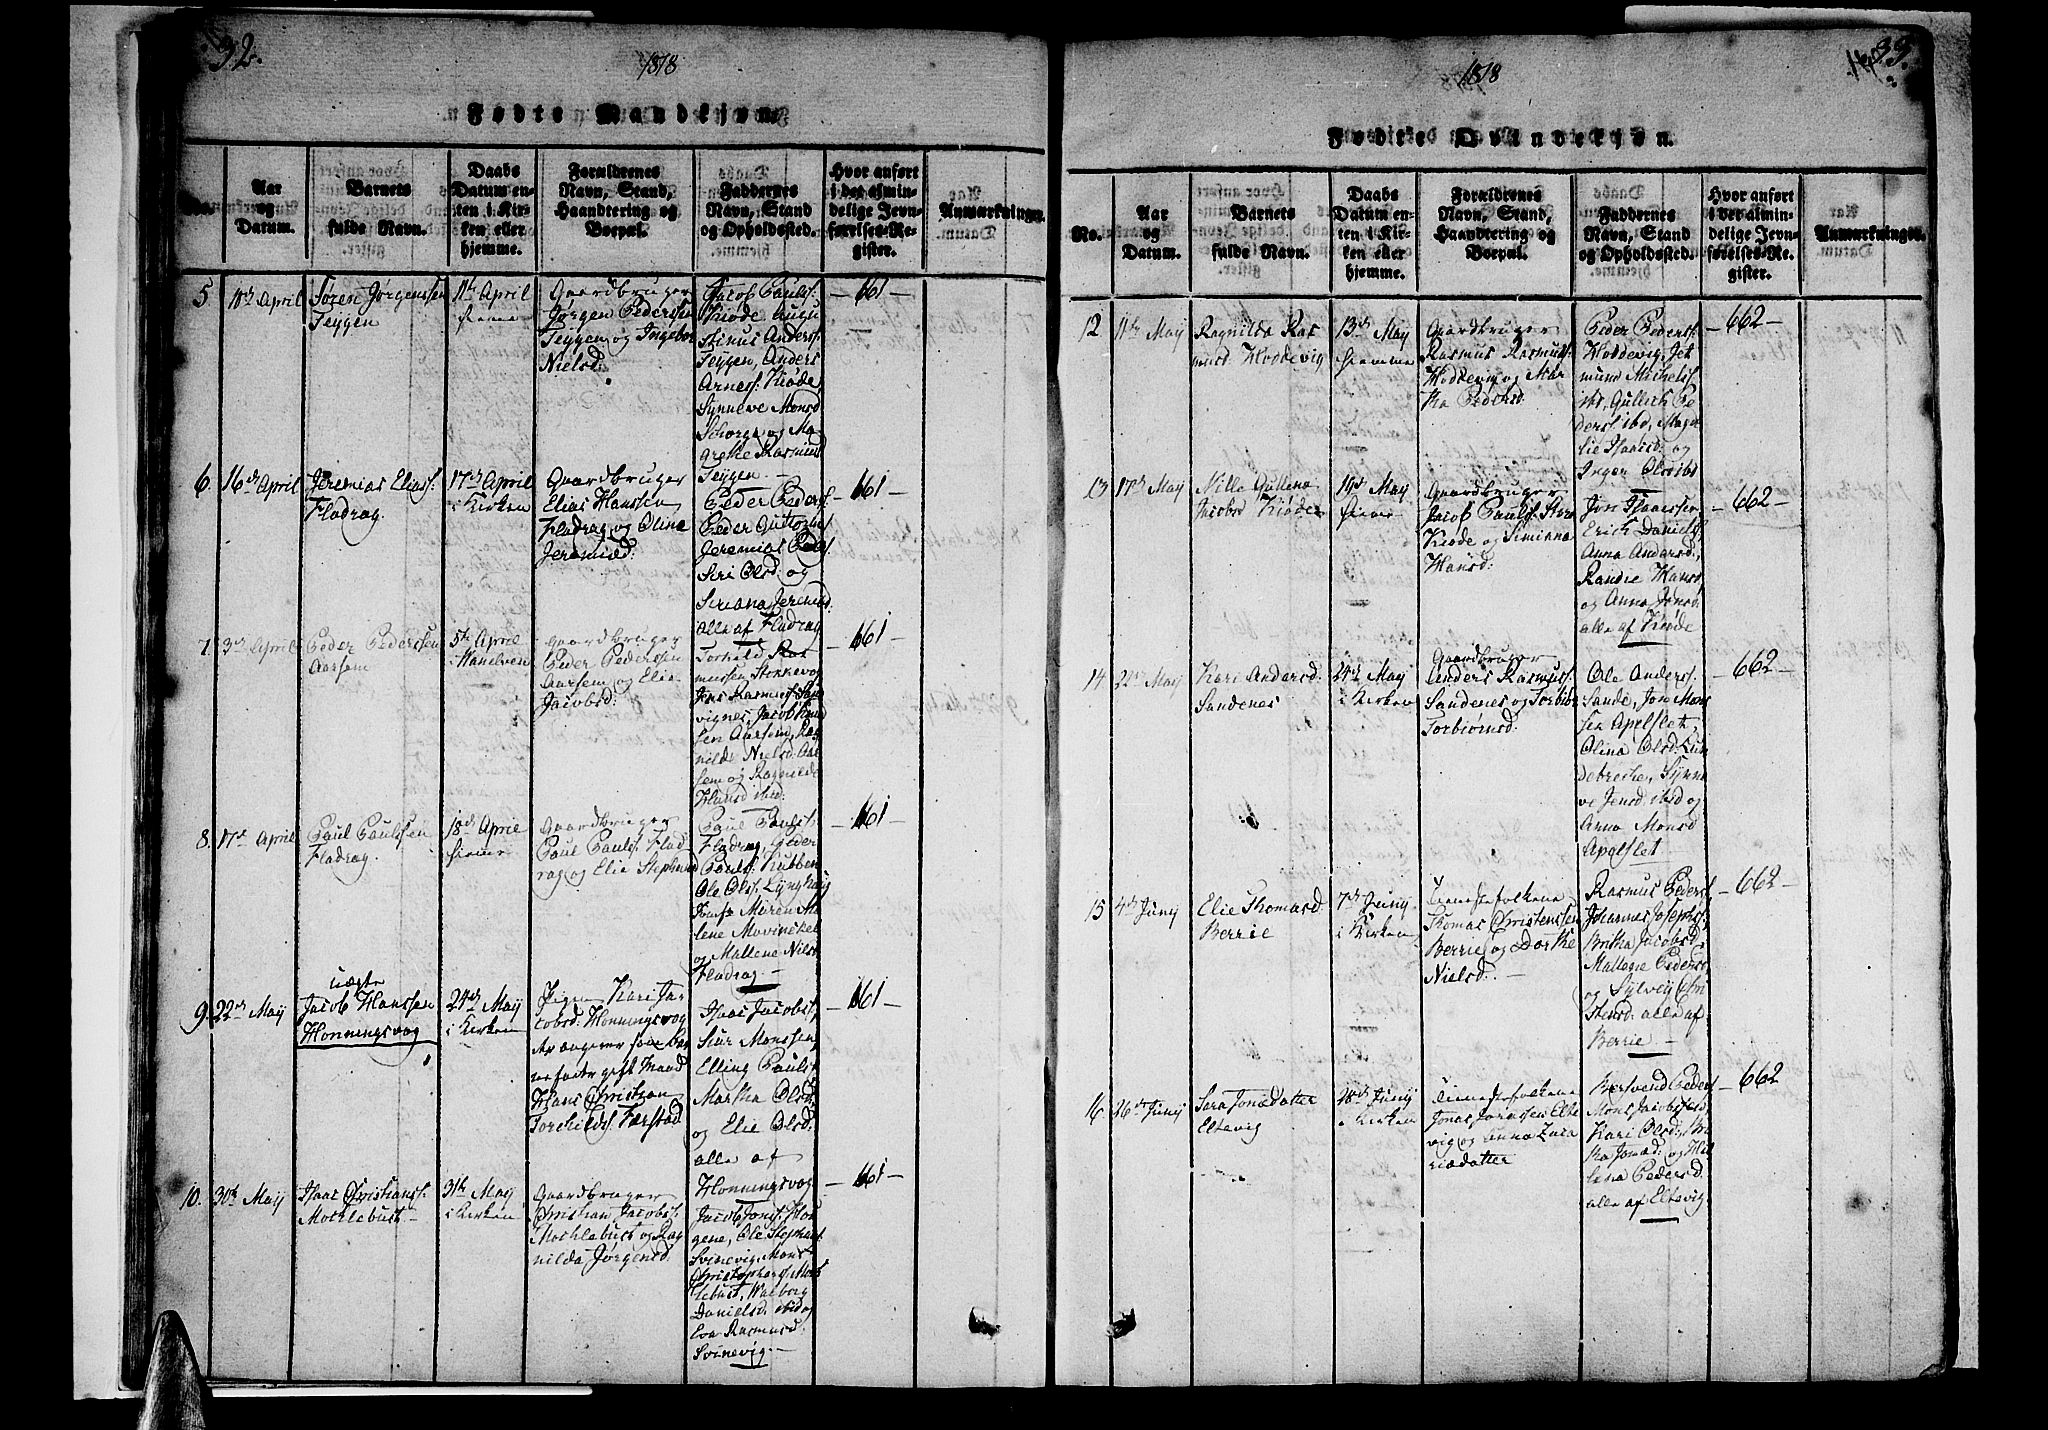 32.
1818
Fødte Mandkjøn.
Aar
og
Datum.
Barnets
fulde Navn.
Daabs
Datum en-
ten i Kir-
ken eller
hjemme.
Forældrenes
Navn, Stand,
Haandtering og
Boepæl.
Faddernes
Navn, Stand
og Opholdssted.
Hvor anført
i det almin-
delige Jevn-
førelses-Re-
gister.
Anmærkninger.
5
11te April
Søren Jørgenssen
Teygen
11te April
hjemme
Gaardbruger
Jørgen Pederssen
Teygen og Ingebor
Nielsd:
Jacob Paulss:
Kiøde Augu
stinus Anderss:
Teygen, Anders
Arness: Kiøde
Synneve Monsd
Schorge og Ma-
grethe Rasmusd
Teygen
— 661 —
6
16de April
Jeremias Eliass:
Fladrag.
17de April
i Kirken
Gaardbruger
Elias Hanssen
Fladrag og Olina
Jeremiæd:
Peder Peders
Peder Guttorms
Jeremias Peders
Siri Olsd: og
Seriana Jeremd:
alle af Fladrag
— 661 —
7
3die April
Peder Pederssen
Aarsem
5te April
Gaardbruger
Peder Pederssen
Aarsem og Elie
Jacobsd:
Torkild Ras
mussen Stokkevog
Jens Rasmuss San
vignes, Jacob Han
sen Aarsem, Rag
nilde Nielsd: Aar
sem og Ragnilde
Hansd ibid:
— 661 —
8.
17de April
Paul Paulssen
Fladrag.
18de April
hjemme
Gaardbruger
Paul Paulss: Flad
rag og Elie Stephensd
Paul Pauls:
Fladrag, Peder
Paulss: Kubben
Ole Olss: Lynghaug
Jomfr Maren Ma
lene
og Mallene Nielsd
Fladrag —
— 661 —
9.
22de Maij
uægte
Jacob Hanssen
Honningsvog
24de Maij
i Kirken
Pigen Kari Ja
cobsd: Honningsvog
som Bar
ne fader gift Mand
Hans Christian
Torkilds: Farstad
Isaac Jacobs:
Siur Monssen,
Elling Pauls:
Martha Olsd:
og Elie Olsd:
alle af
Honningsvog
— 661 —
10.
30te Maij
Isaac Christianss:
Mochlebust —
31te Maij
i Kirken
Gaardbruger
Christian Jacobss:
Mochlebust og Rag
nilda Jørgensd.
Jacob Jons:
gene, Ole Stephans
Svinevig, Mons
Christophers: Moch
lebust, Walborg
Danielsd: ibid og
Eva Rasmusd:
Svinevig. —
— 661 —
33.
1818
Fødte Qvindekjøn.
No.
Aar
og
Datum.
Barnets
fulde Navn.
Daabs
Datum en-
ten i Kir-
ken eller
hjemme.
Forældrenes
Navn, Stand,
Haandtering og
Boepæl.
Faddernes
Navn, Stand
og Opholdssted.
Hvor anført
i det almin-
delige Jevn-
førelses-Re-
gister.
Anmærkninger.
12
11te Maij
Ragnilda Ras
musd Hoddevig
13de Maij
hjemme
Gaardbruger
Rasmus Rasmuss:
Hoddevig og Mar
tha Pedersd.
Peder Peders:
Hoddevig, Jet
mund Michels:
ibd, Gullich Pe
ders: ibd, Mage
lie Isaacsd: og
Inger Olsd: ibd
— 662 —
13
17de Maij
Nille Gullena
Jacobsd Kiøde
19de Maij
hjemme
Gaardbruger
Jacob Paulss:
Kiøde og Simiana
Hansd:
Jon Isaacssen
Erick Daniels
Anna Andersd:,
Randie Hansd
og Anna Jonsd:
alle af Kiøde
— 662 —
14
22de Maij
Kari Andersd:
Sandenes
24de Maij
i Kirken
Gaardbruger
Anders Rasmuss:
Sandenes og Torbiør
Torbiørnsd:
Ole Anderss:
Sande, Jon Mons
sen Apelset,
Olina Olsd: Lin
debrecke, Synne
ve Jensd: ibid og
Anna Monsd
Apelset
— 662 —
15
4de Junij
Elie Thomasd:
Berrie
7de Junij
i Kirken
Tienestefolkene
Thomas Christenssen
Berrie og Dorthe
Nielsd. —
Rasmus Peders,
Johannes Josephs,
Britha Jacobsd.
Mallene Pedersd,
og Sylvig Chri
stensd: alle af
Berrie —
— 662 —
16
26de Junij
Sara Jonædatter
Eltevig
28de Junij
i Kirken
Tienestefolkene
Jonas Jonassen Elte
vig og Anna Zacha
riædatter
Bersvend Peders
Mons Jacobs: ibd,
Kari Olsd:, Mar
tha Jonæd: og Hel
lena Pedersd
alle af Eltevig
— 662